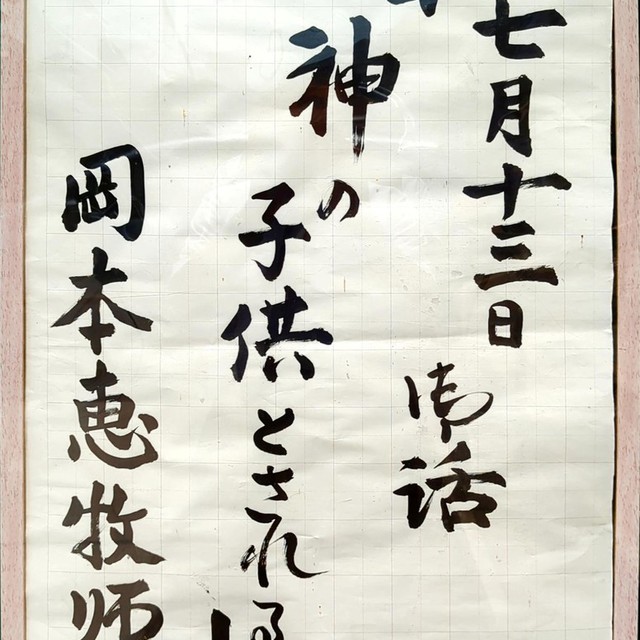 七月十三日
御話
神の
子供とされる
岡本恵牧师